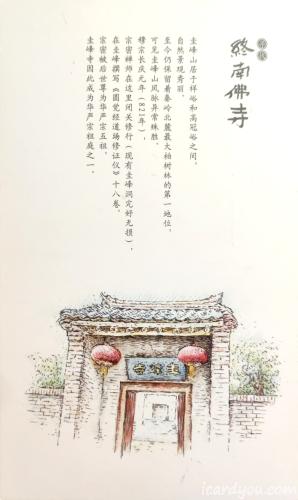 終南佛寺
圭峰山居于祥峪和高冠峪之间，
自然景观秀丽，
至今仍保留着秦岭北麓最大柏树林的第一地位，
可见圭峰山风脉异常殊胜。
穆宗长庆元年（821年），
宗密禅师在这里闭关修行（现有圭峰洞完好无损），
在圭峰撰写《圆觉经道场修证仪》十八卷。
宗密被后世尊为华严宗五祖，
圭峰寺因此成为华严宗祖庭之一。
圭峰寺
icardyou.com